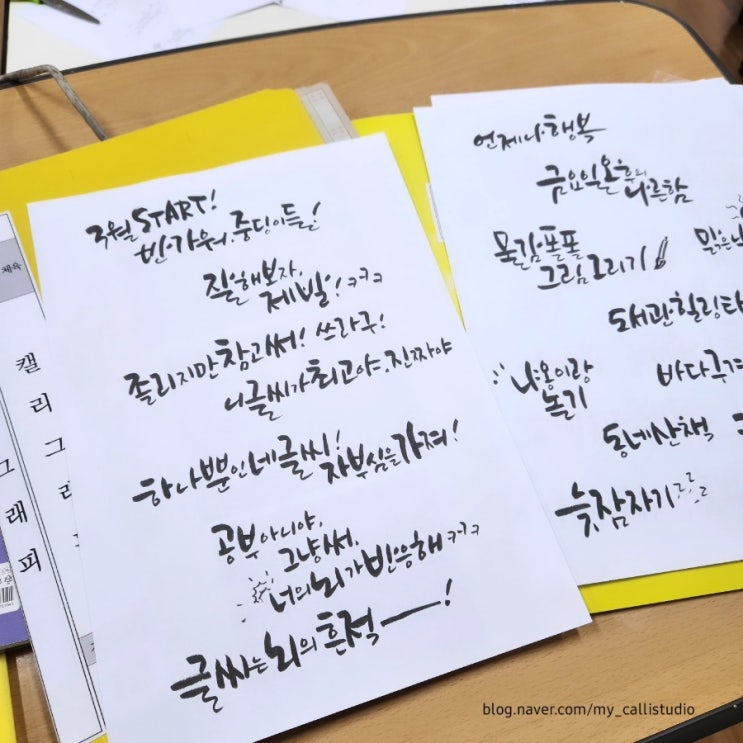 3월 START!
반가워, 중딩이들!
집필해보자,
제발! ㅋㅋㅋ
졸리지만 참고 써! 쓰라구!
니 글씨가 최고야, 진짜야
하나뿐인 네 글씨!
자부심을 가져!
공부 아니야,
그냥 써,
너의 뇌가 반응해 ㅋㅋㅋ
글씨는 뇌의 흔적!
언제나 행복
금요일 오후의
나른함
물감 퐁퐁
그림 그리기
맑은
도서관 힐링
나옹이랑
놀기
바다
동네 산책
늦잠 자기 zzz
체육
캘
리
그
래
피
blog.naver.com/my_callistudio